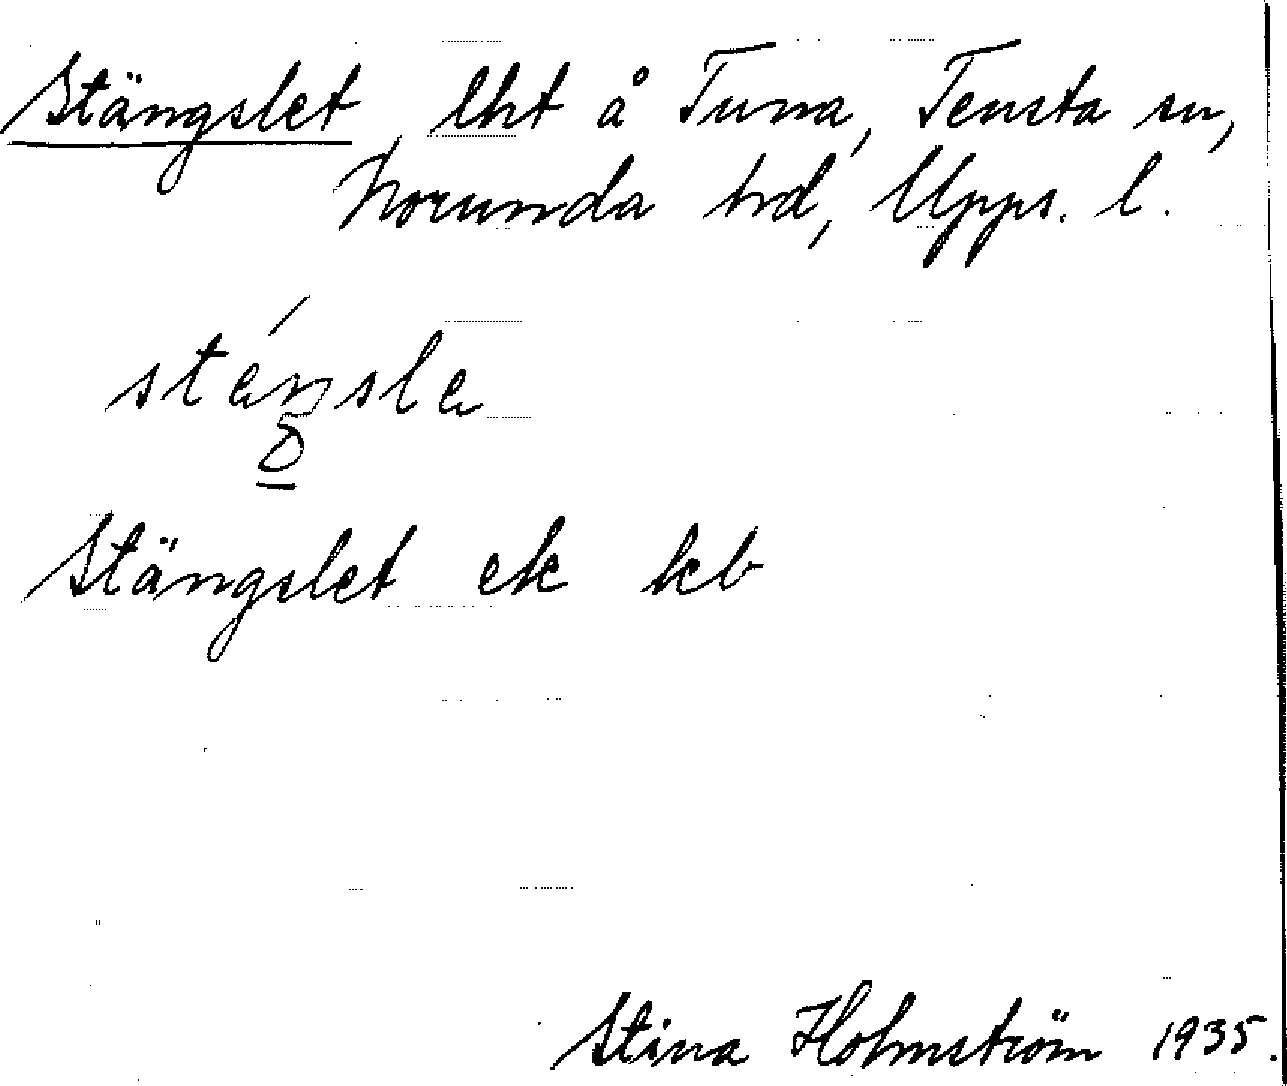 Stängslet, lht å Tuna, Tensta sn,
Norunda hd, Upps. l.
Stängslet ek kb
Stina Holmström 1935.